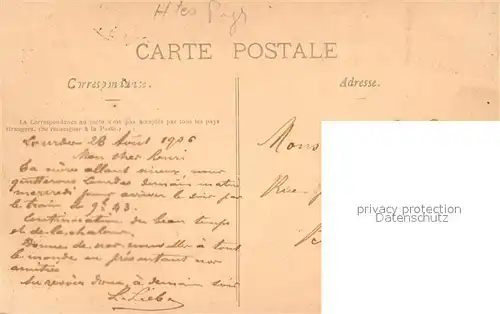 Htes Pyr
CARTE POSTALE
Correspondance.
Adresse.
La Correspondance au recto n'est pas acceptée par tous les pays
étrangers. (Se renseigner à la Poste.)
Lourdes 28 Août 1906
Mon cher Henri
Ta mère allant mieux, nous
quitterons Lourdes demain matin
mercredi pour arriver le soir par
le train de 9h 43.
Continuation du beau temps
et de la chaleur.
Donnes de nos nouvelles à tout
le monde en présentant nos
amitiés
Au revoir donc, à demain soir
Mons
Rue
privacy protection
Datenschutz